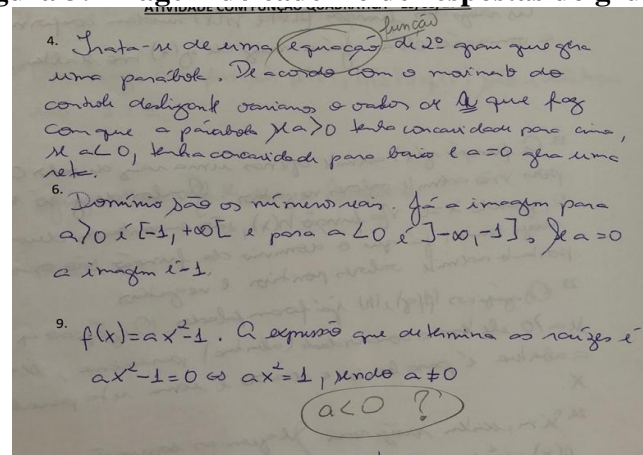 função
4. Trata-se de uma equação de 2º grau que gera
uma parábola. De acordo com o movimento do
controle deslizante variamos o valor de a que faz
com que a parábola se a>0 tenha concavidade para cima,
se a<0, tenha concavidade para baixo e a=0 gera uma
reta.
6. Domínio são os números reais. Já a imagem para
a>0 é [-1, +∞[ e para a<0 é ]-∞, -1]. Se a=0
a imagem é -1.
9. f(x)=ax²-1. A expressão que determina as raízes é
ax²-1=0 ⇔ ax²=1, sendo a≠0
a<0 ?